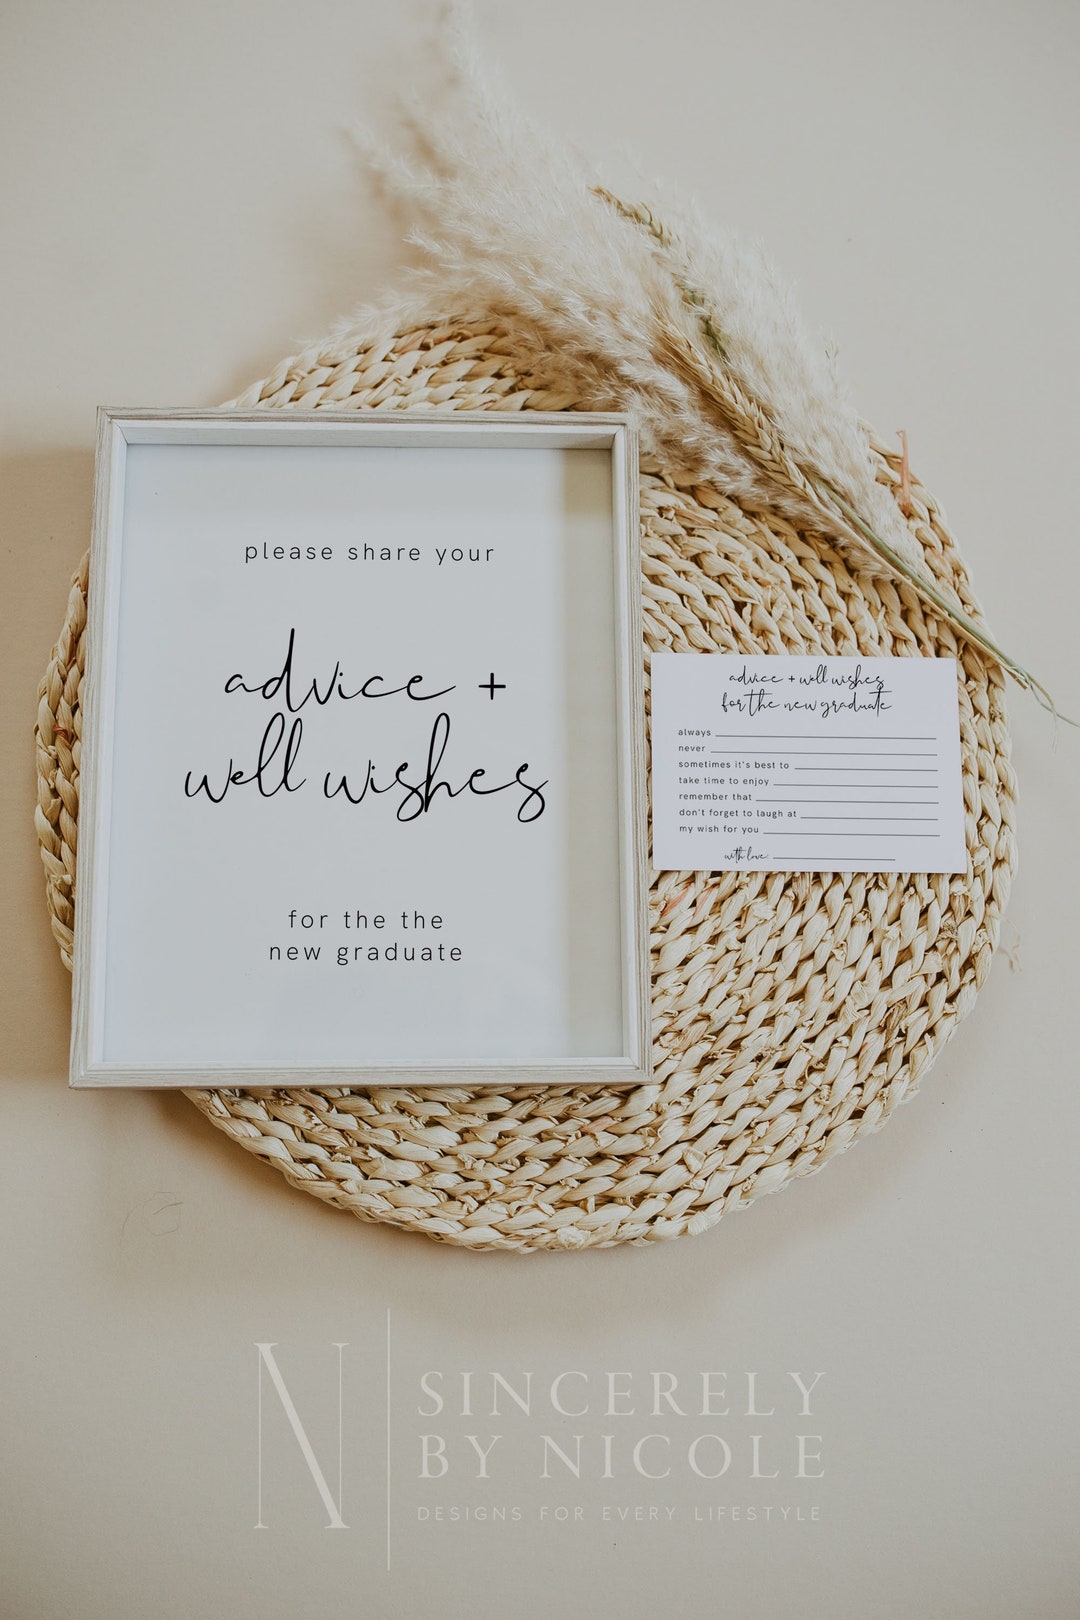 please share your
advice +
well wishes
for the the
new graduate
advice + well wishes
for the new graduate
always
never
sometimes it's best to
take time to enjoy
remember that
don't forget to laugh at
my wish for you
with love:
N
SINCERELY
BY NICOLE
DESIGNS FOR EVERY LIFESTYLE